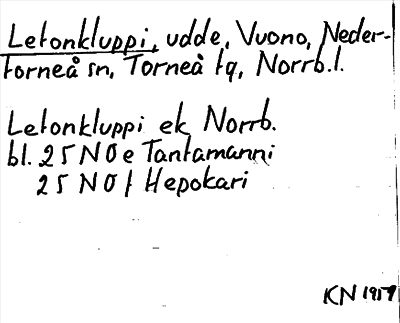 Letonkluppi, udde, Vuono, Neder-
torneå sn, Torneå tg, Norrb.l.
Letonkluppi ek Norrb.
bl. 25 NO e Tantamanni
25 NO f Hepokari
KN 1959